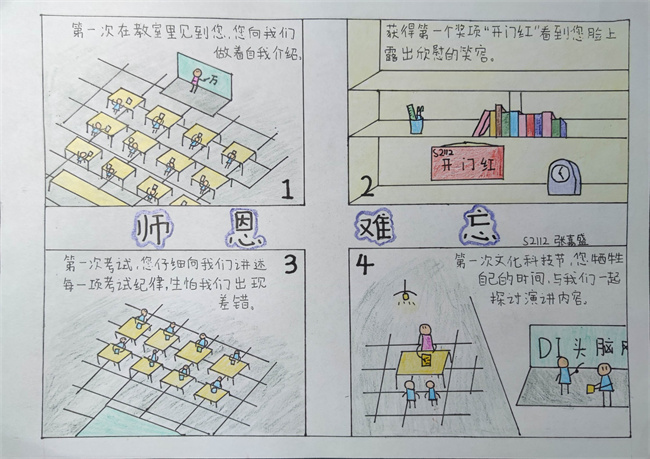 第一次在教室里见到您，您向我们
做着自我介绍。
万
1
获得第一个奖项“开门红”看到您脸上
露出欣慰的笑容。
S2112
开门红
2
师恩难忘
S2112 张嘉盛
第一次考试，您仔细向我们讲述
每一项考试纪律，生怕我们出现
差错。
3
4
第一次文化科技节，您牺牲
自己的时间，与我们一起
探讨演讲内容。
DI头脑